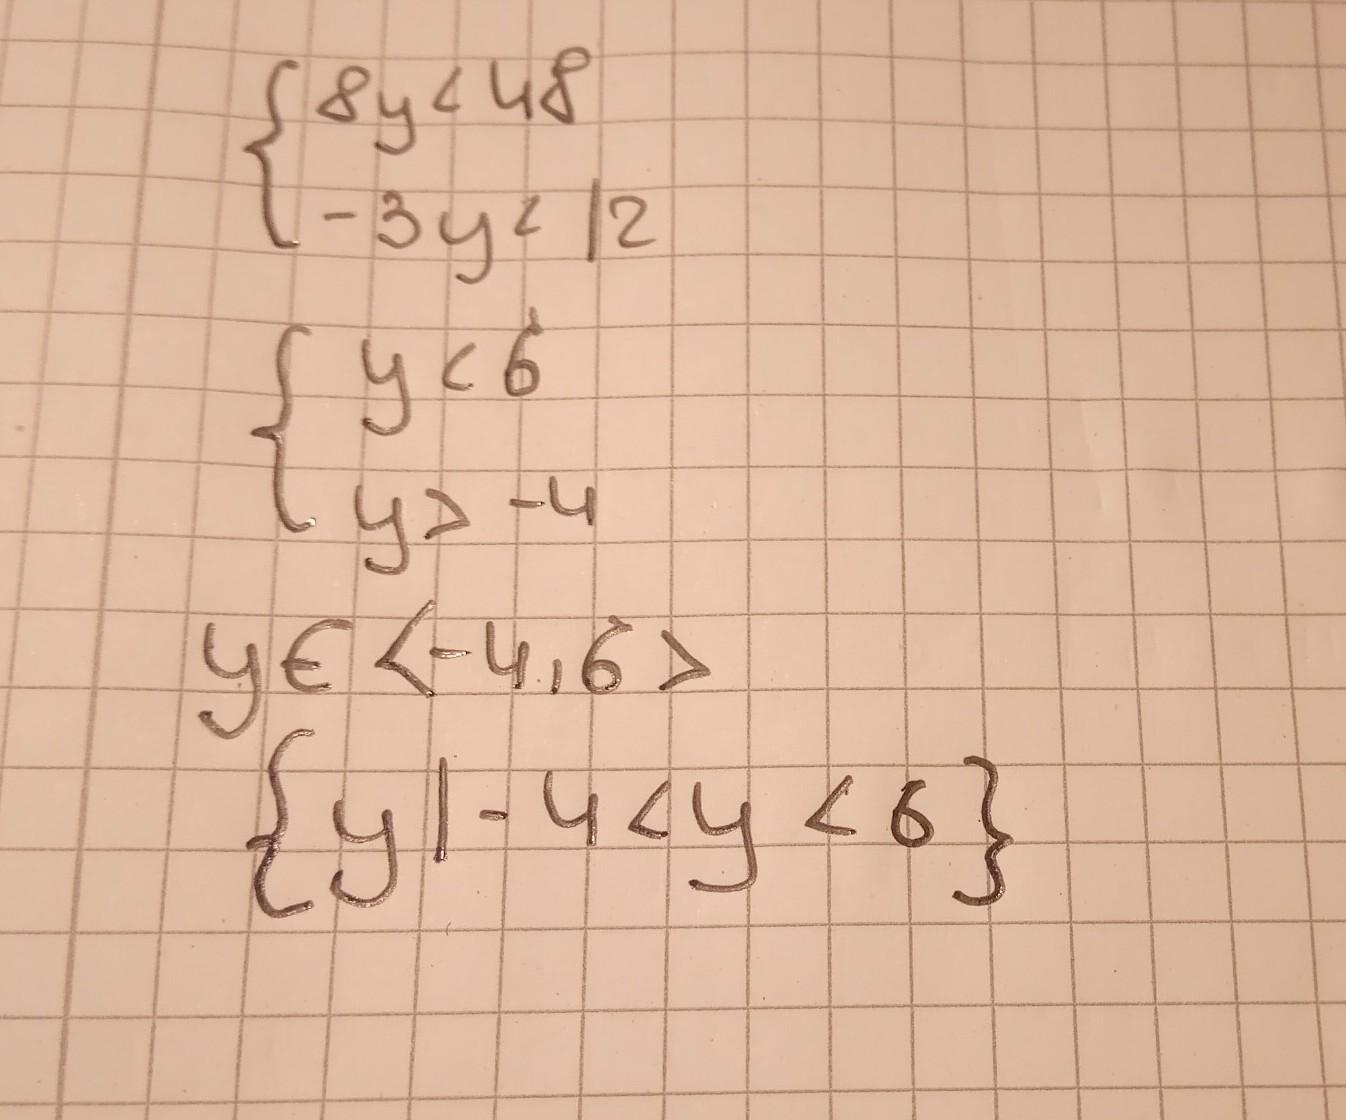 { 8y < 48
-3y < 12
{ y < 6
y > -4
y ∈ <-4,6>
{y|-4 < y < 6}